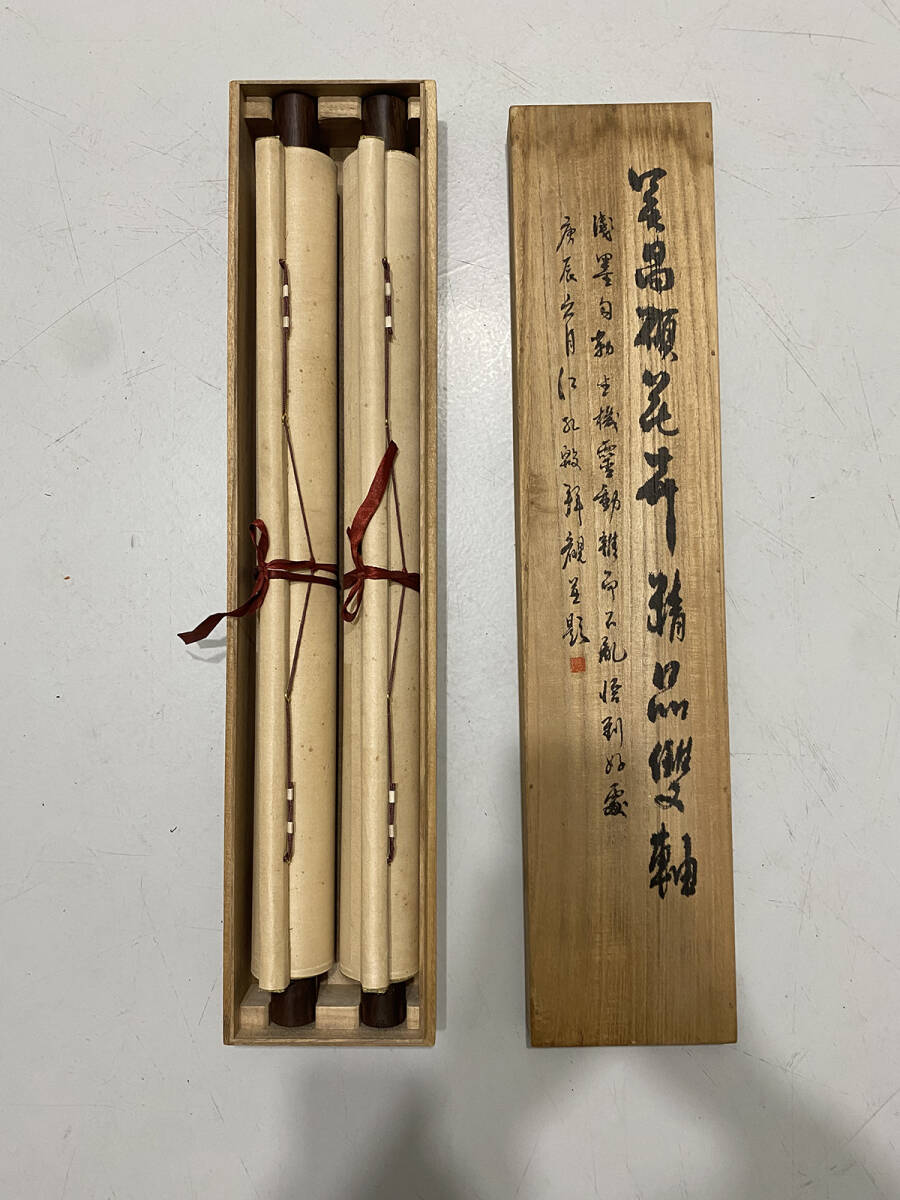 吳昌碩花卉精品雙軸
淺墨勾勒生機靈動雜而不亂悟到好處
庚辰六月江孔殷拜觀並題